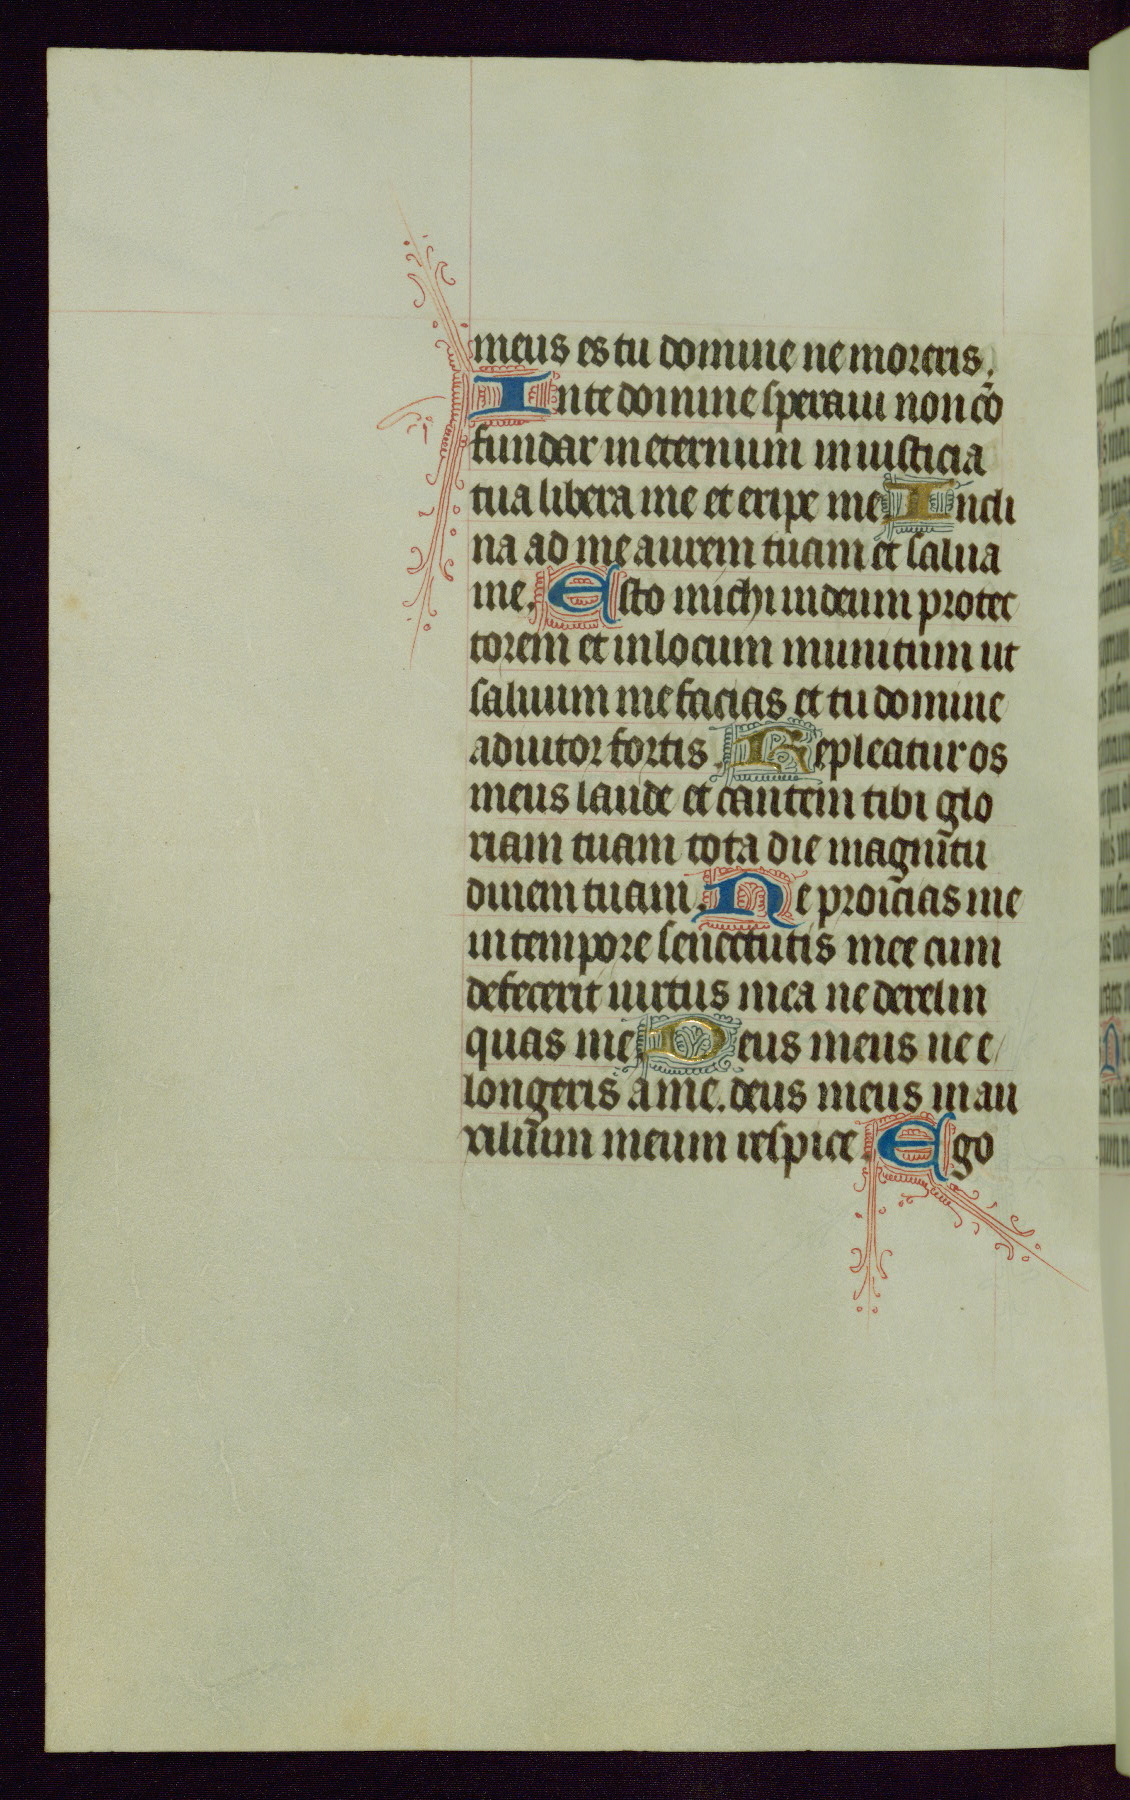 meus es tu domine ne moreris.
In te domine speraui non cō
fundar in eternum in iusticia
tua libera me et eripe me. Incli
na ad me aurem tuam et salua
me. Esto michi in deum protec
torem et in locum munitum ut
saluum me facias et tu domine
adiutor fortis. Repleatur os
meus laude et cantem tibi glo
riam tuam tota die magnitu
dinem tuam. Ne proicias me
in tempore senectutis mee cum
defecerit uirtus mea ne derelin
quas me. Deus meus ne e
longeris a me. deus meus in au
xilium meum respice. Ego